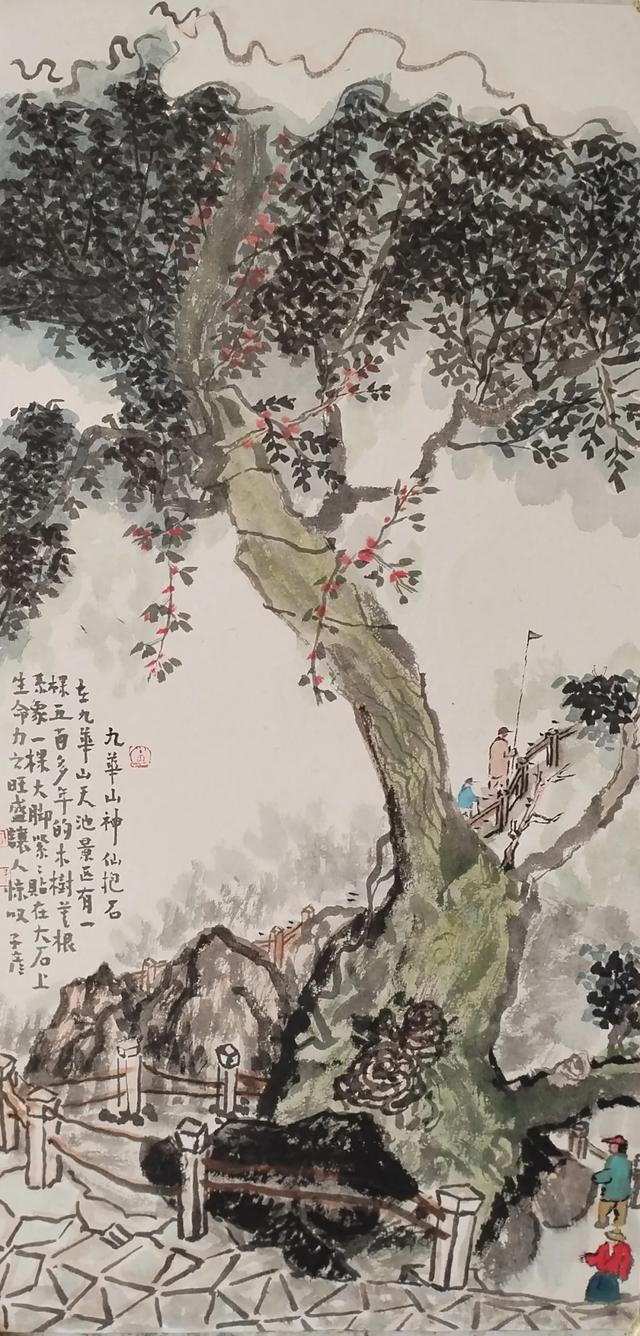 九華山神仙抱石
在九華山天池景区有一
棵五百多年的木樹其根
系象一棵大脚紧〻貼在大石上
生命力之旺盛讓人惊叹 子彦